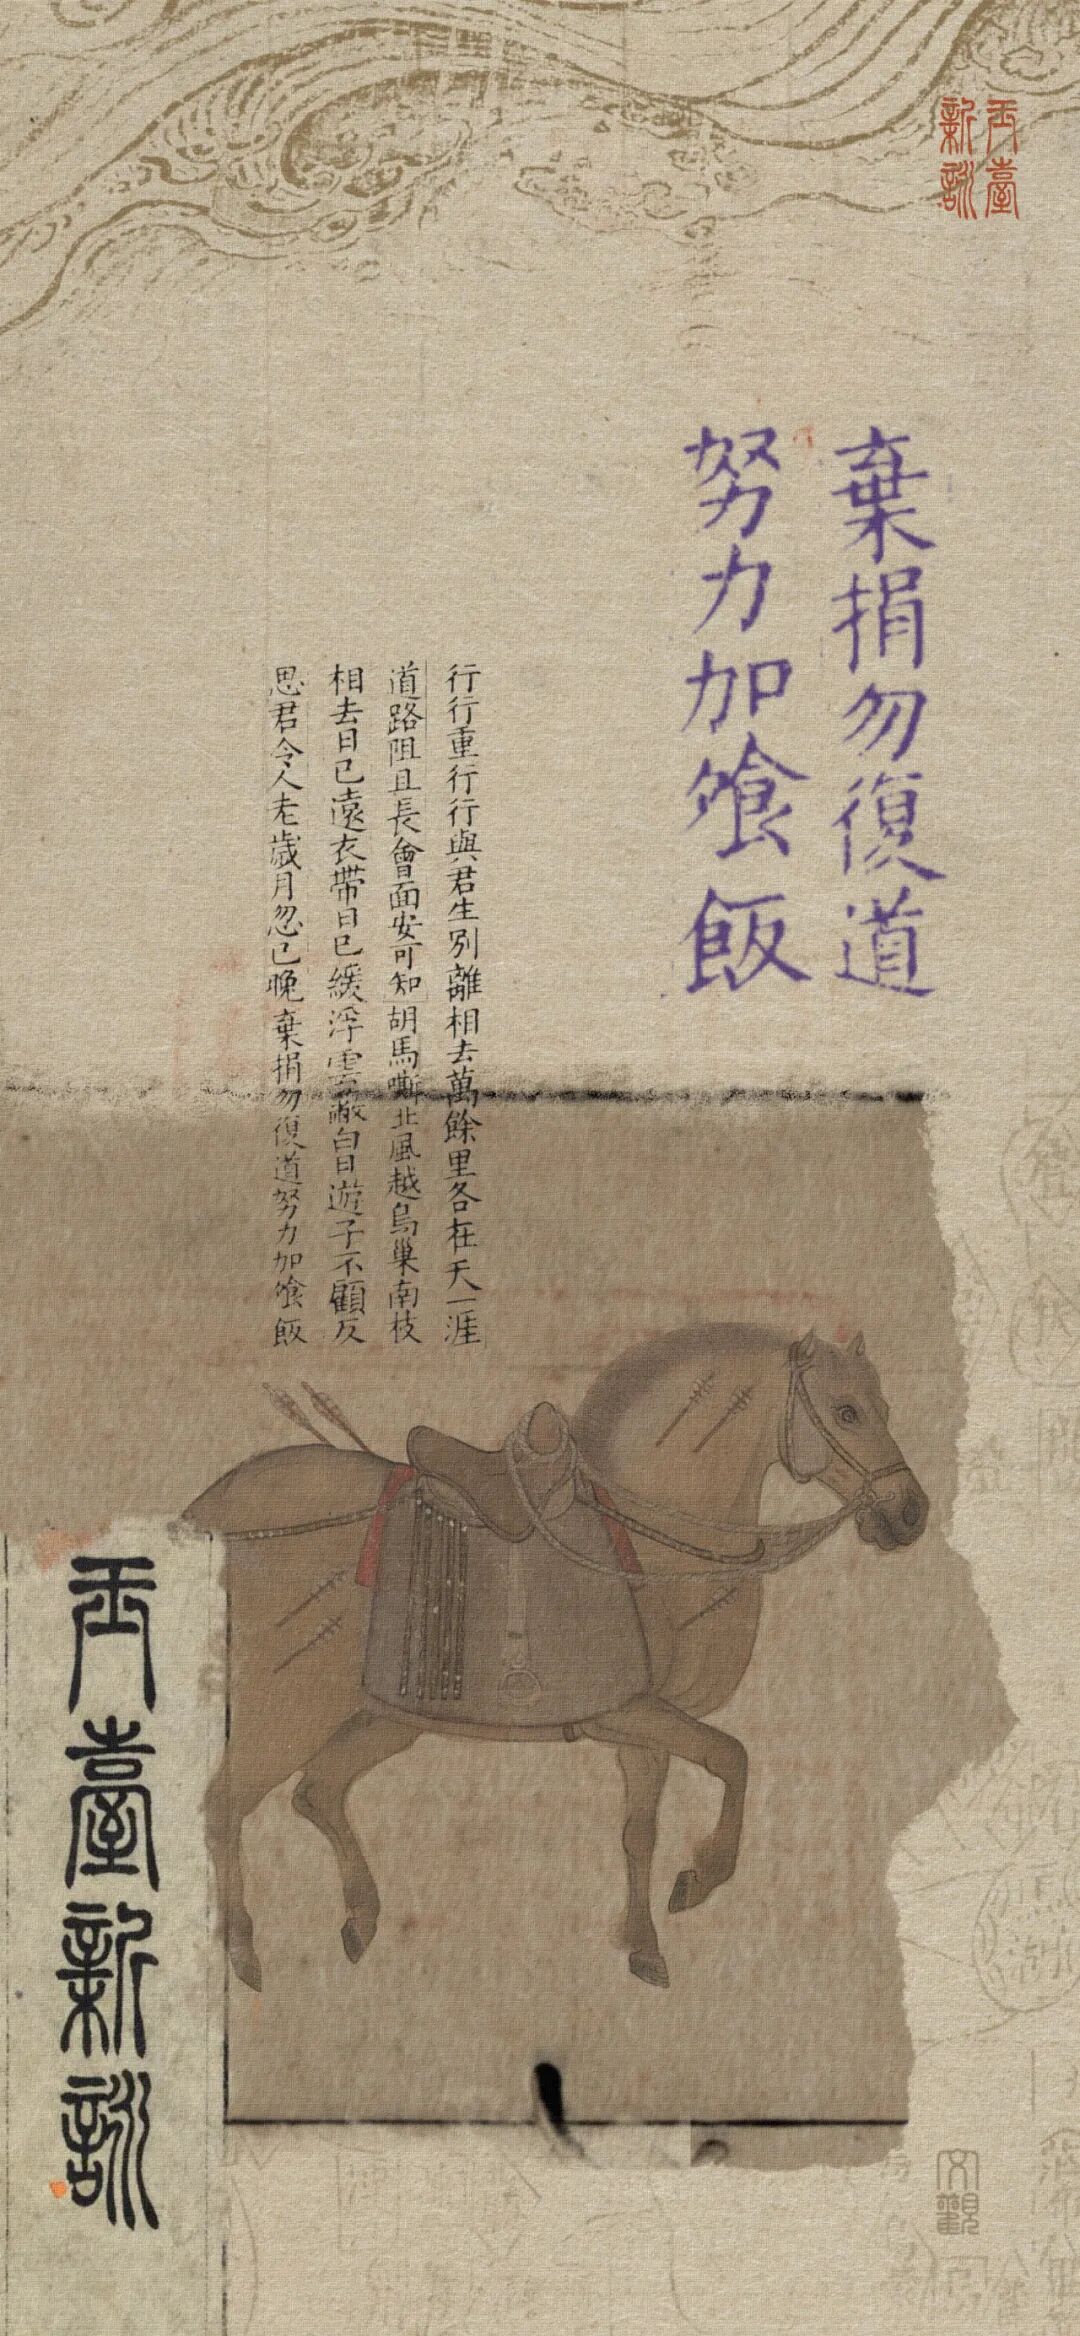 玉臺
新詠
棄捐勿復道
努力加飡飯
行行重行行與君生別離相去萬餘里各在天一涯
道路阻且長會面安可知胡馬嘶北風越鳥巢南枝
相去日已遠衣帶日已緩浮雲蔽白日遊子不顧反
思君令人老歲月忽已晚棄捐勿復道努力加飡飯
玉臺新詠
文觀